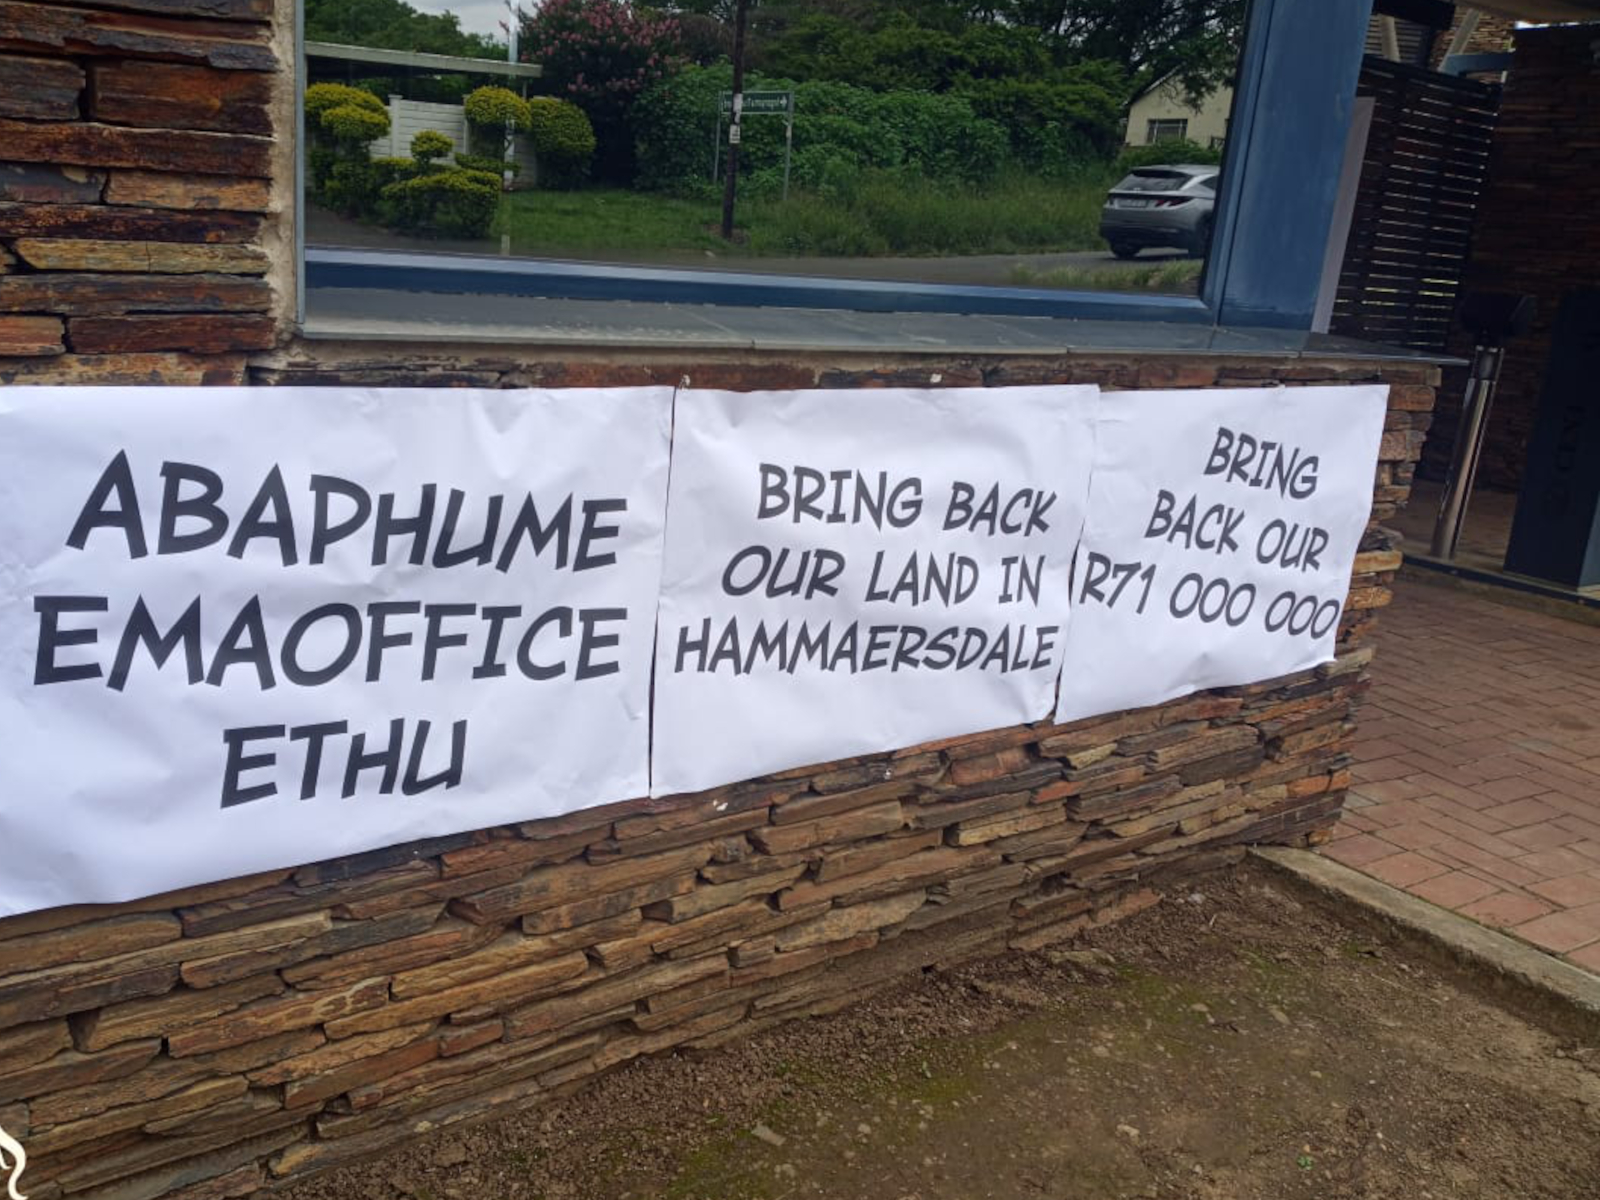 ABAPHUME
EMAOFFICE
ETHU
BRING BACK
OUR LAND IN
HAMMAERSDALE
BRING
BACK OUR
R71 000 000